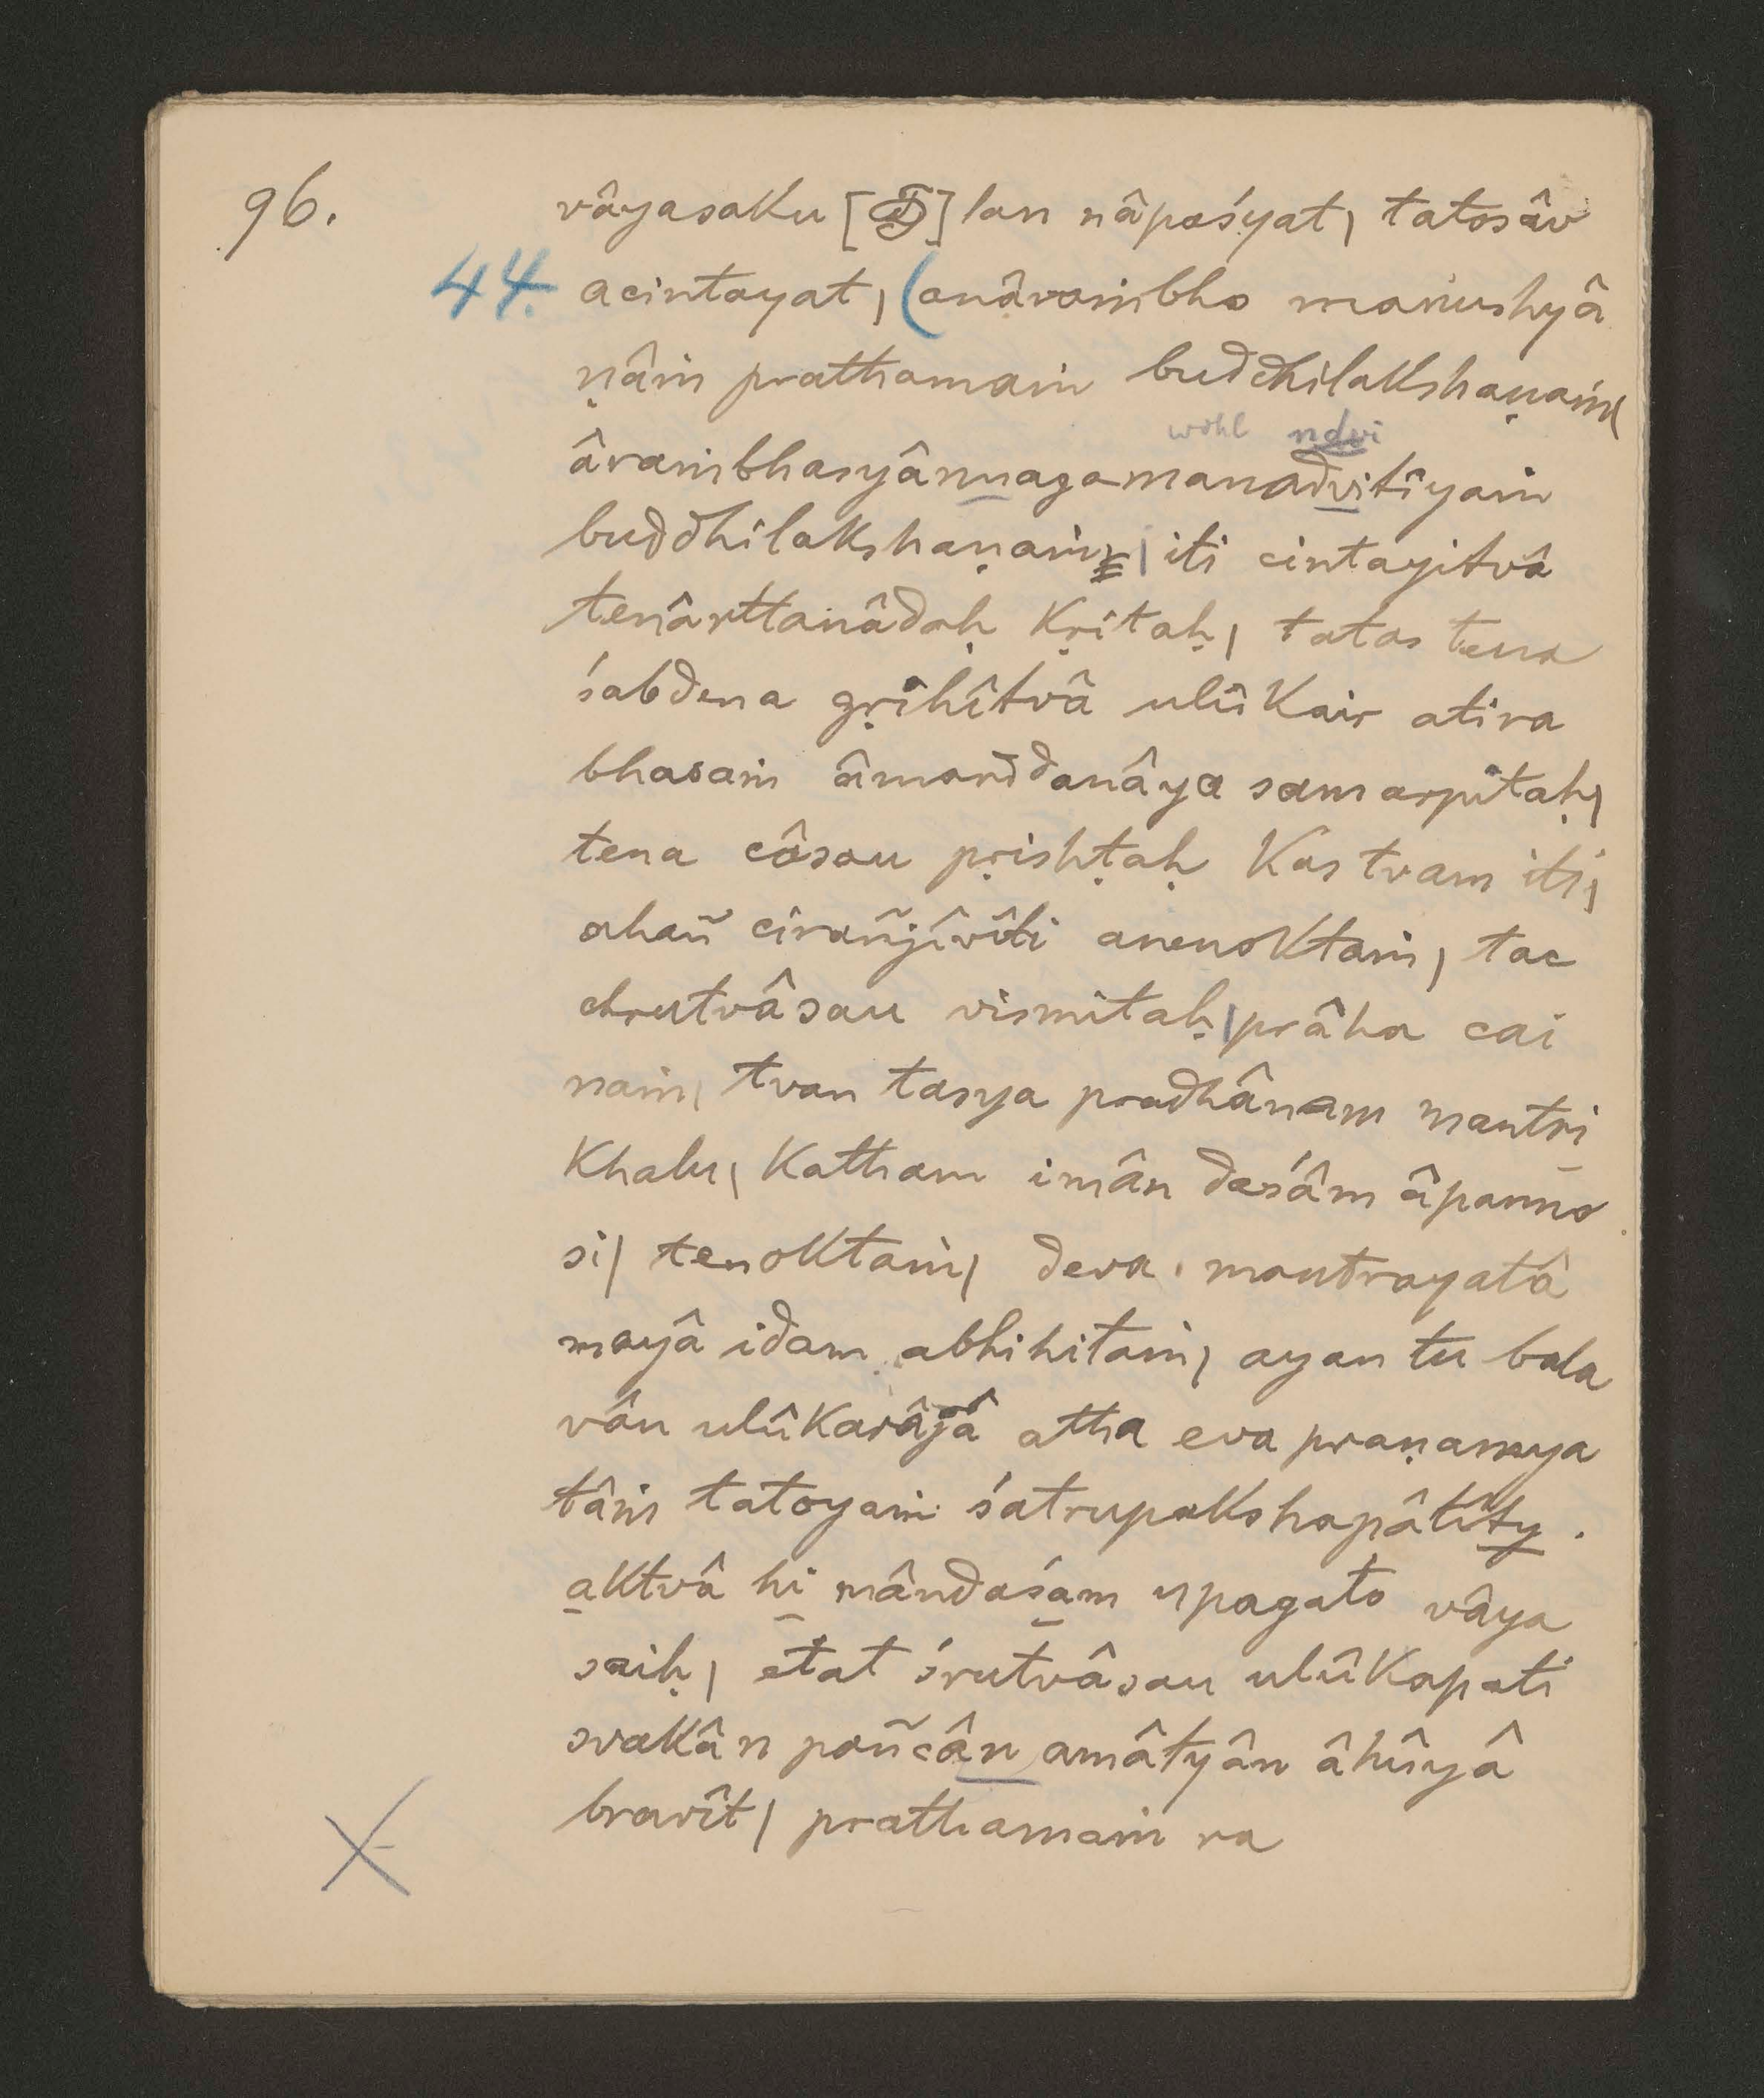 96.
vâyasaku [] lan nâpaśyat | tatosâv
44. acintayat | (anâraṁbho manushyâ
ṇâṁ prathamaṁ buddhilakshaṇaṁ |
wohl ndvi
âraṁbhasyânnagamanadvitîyaṁ
buddhilakshaṇaṁ | iti cintayitvâ
tenârttanâdaḥ kṛitaḥ | tatas tena
śabdena gṛihîtvâ ulûkair atira
bhasaṁ âmarddanâya samarpitaḥ |
tena câsau pṛishṭaḥ kas tvam iti |
ahañ cirañjîvîti anenoktaṁ | tac
chrutvâsau vismitaḥ | prâha cai
naṁ | tvan tasya pradhânam mantri
khalu | katham imân daśâm âpanno
si | tenoktaṁ | deva mantrayatâ
mayâ idam abhihitaṁ | ayan tu bala
vân ulûkarâjâ atha eva praṇamya
tâṁ tatoyaṁ śatrupakshapâtîty
aktvâ hi mândaśam upagato vâya
saiḥ | etat śrutvâsau ulûkapati
svakân pañcân amâtyân âhûyâ
bravît | prathamaṁ ra